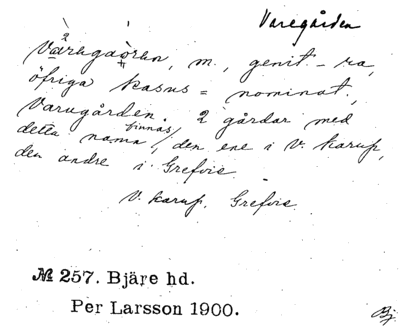 Varegården
Väregåoren, m., genit. - ra,
öfriga kasus = nominat.,
Varugården. 2 gårdar med
detta namn finnas, den ene i V. Karup,
den andre i Grefvie.
V. Karup. Grefvie.
№ 257. Bjäre hd.
Per Larsson 1900.
Bj